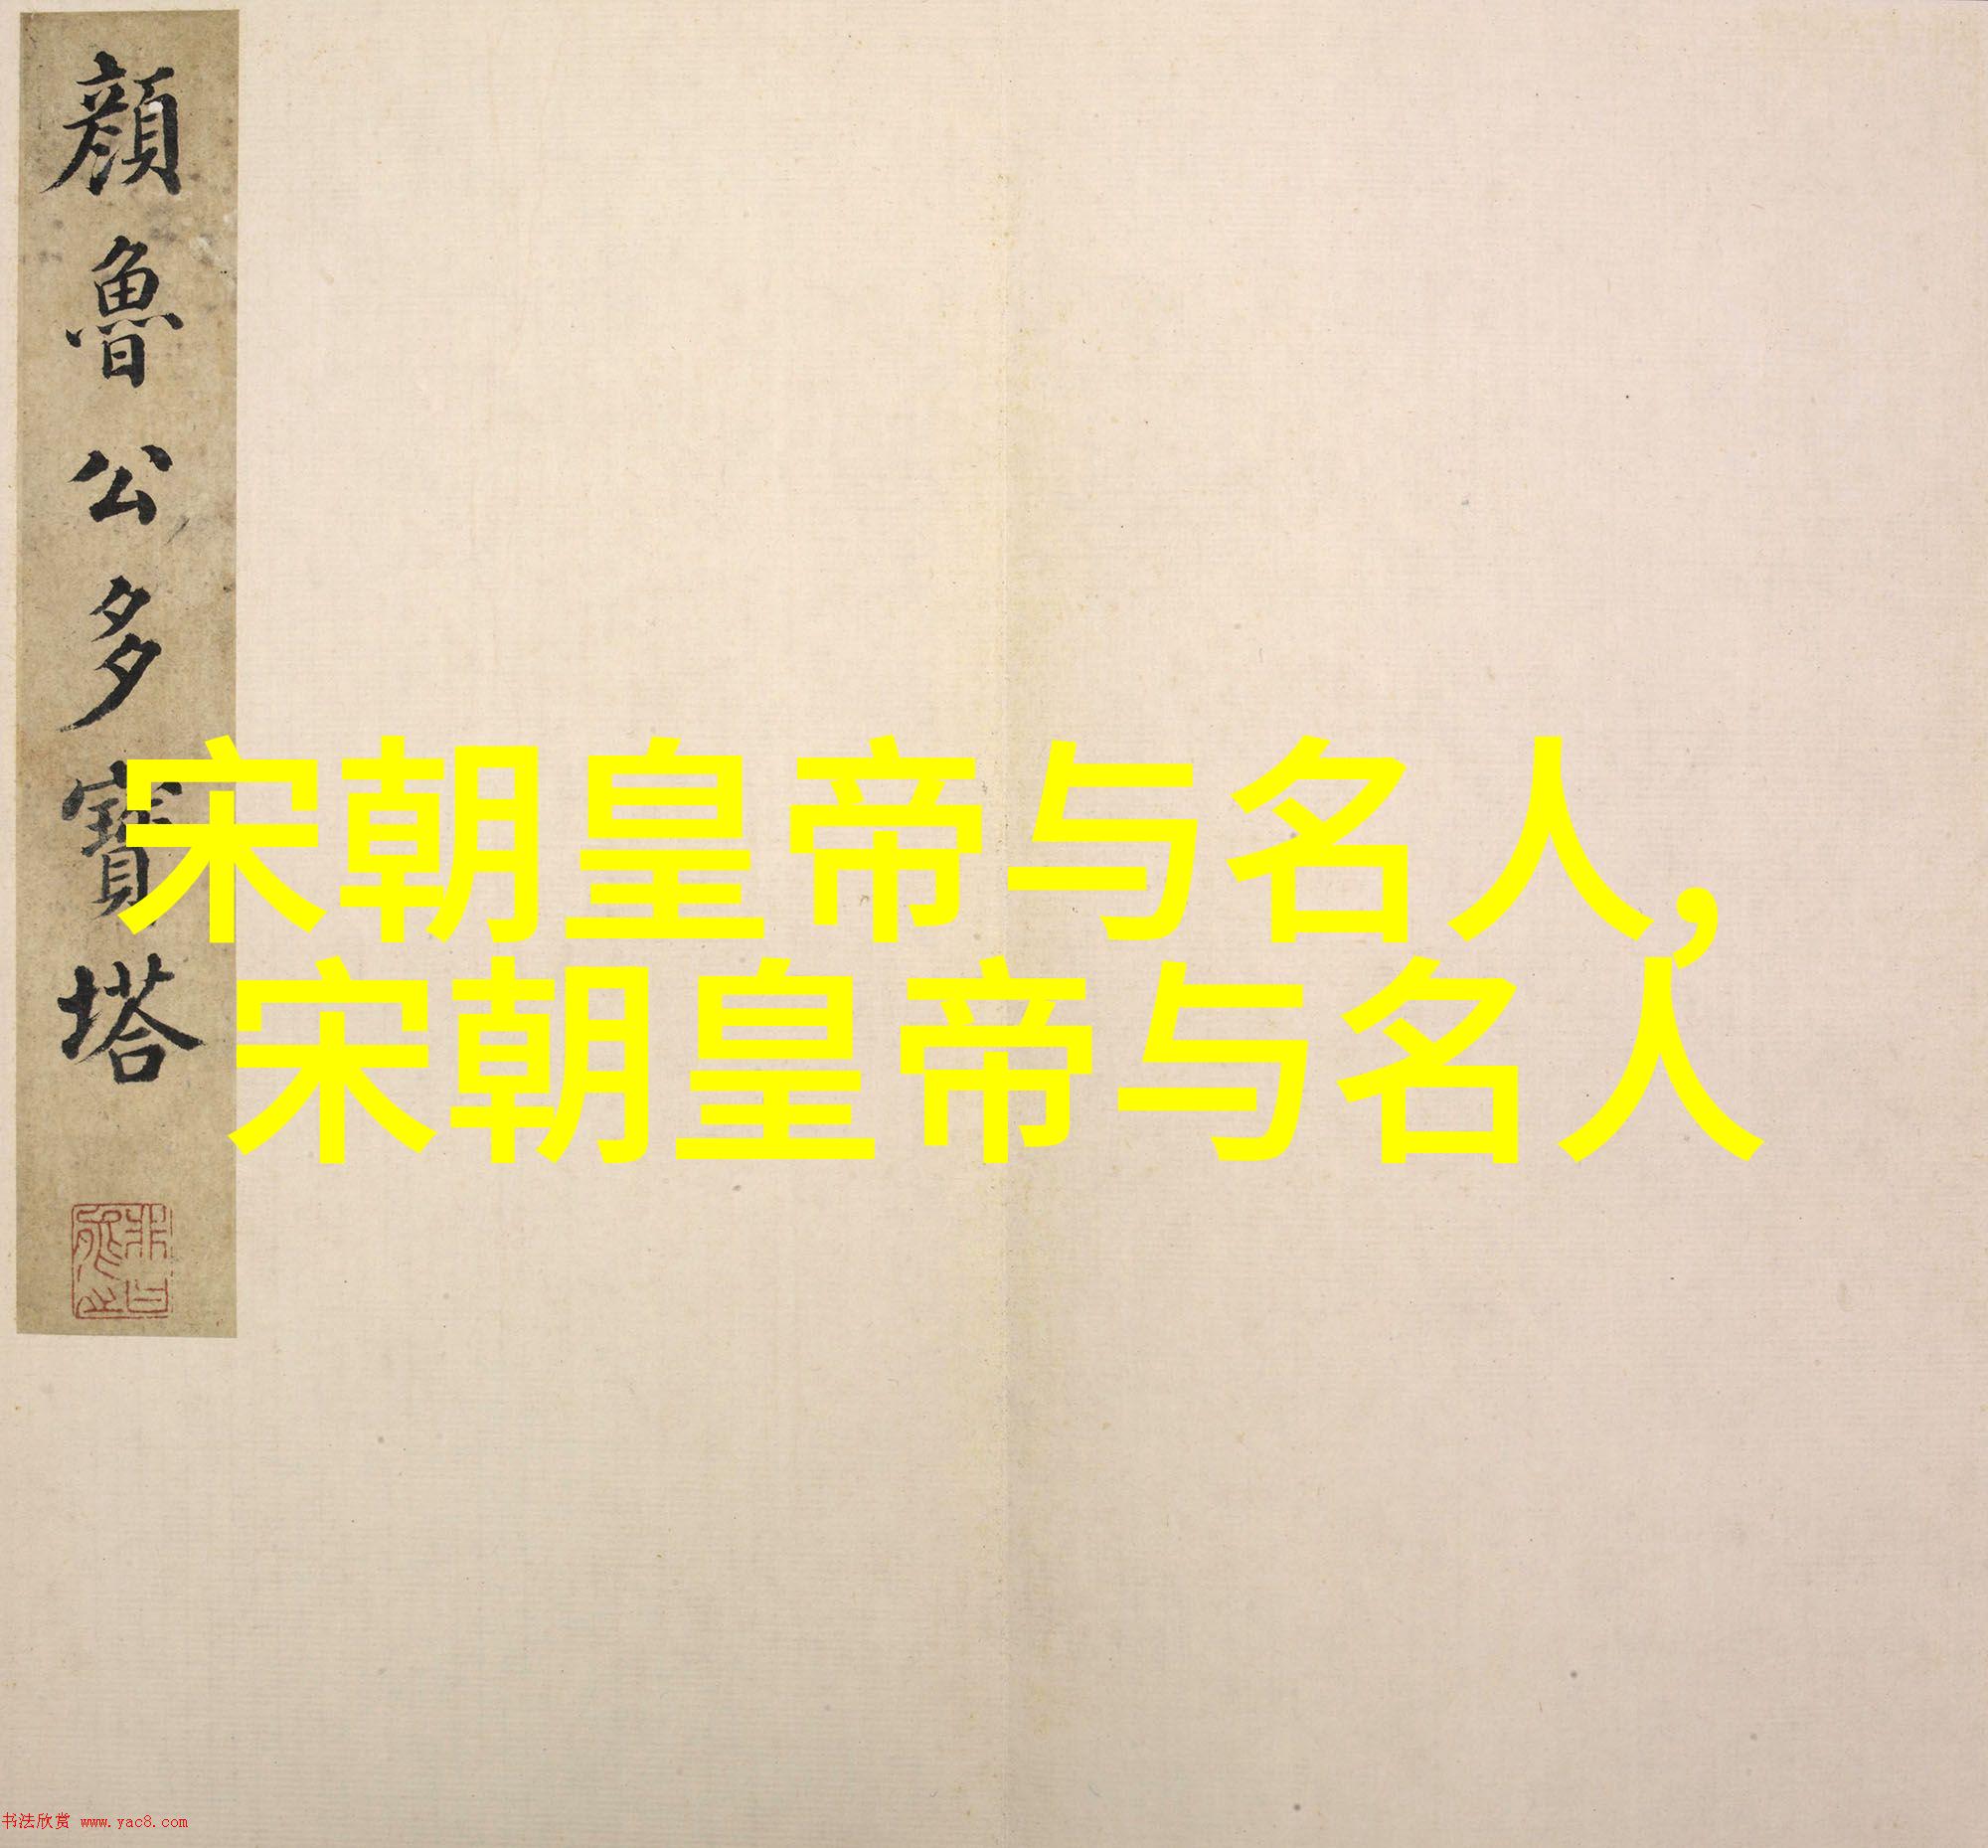 顔魯公多寶塔
宋朝皇帝与名人,
宋朝皇帝与名人
书法欣赏 www.yac8.com